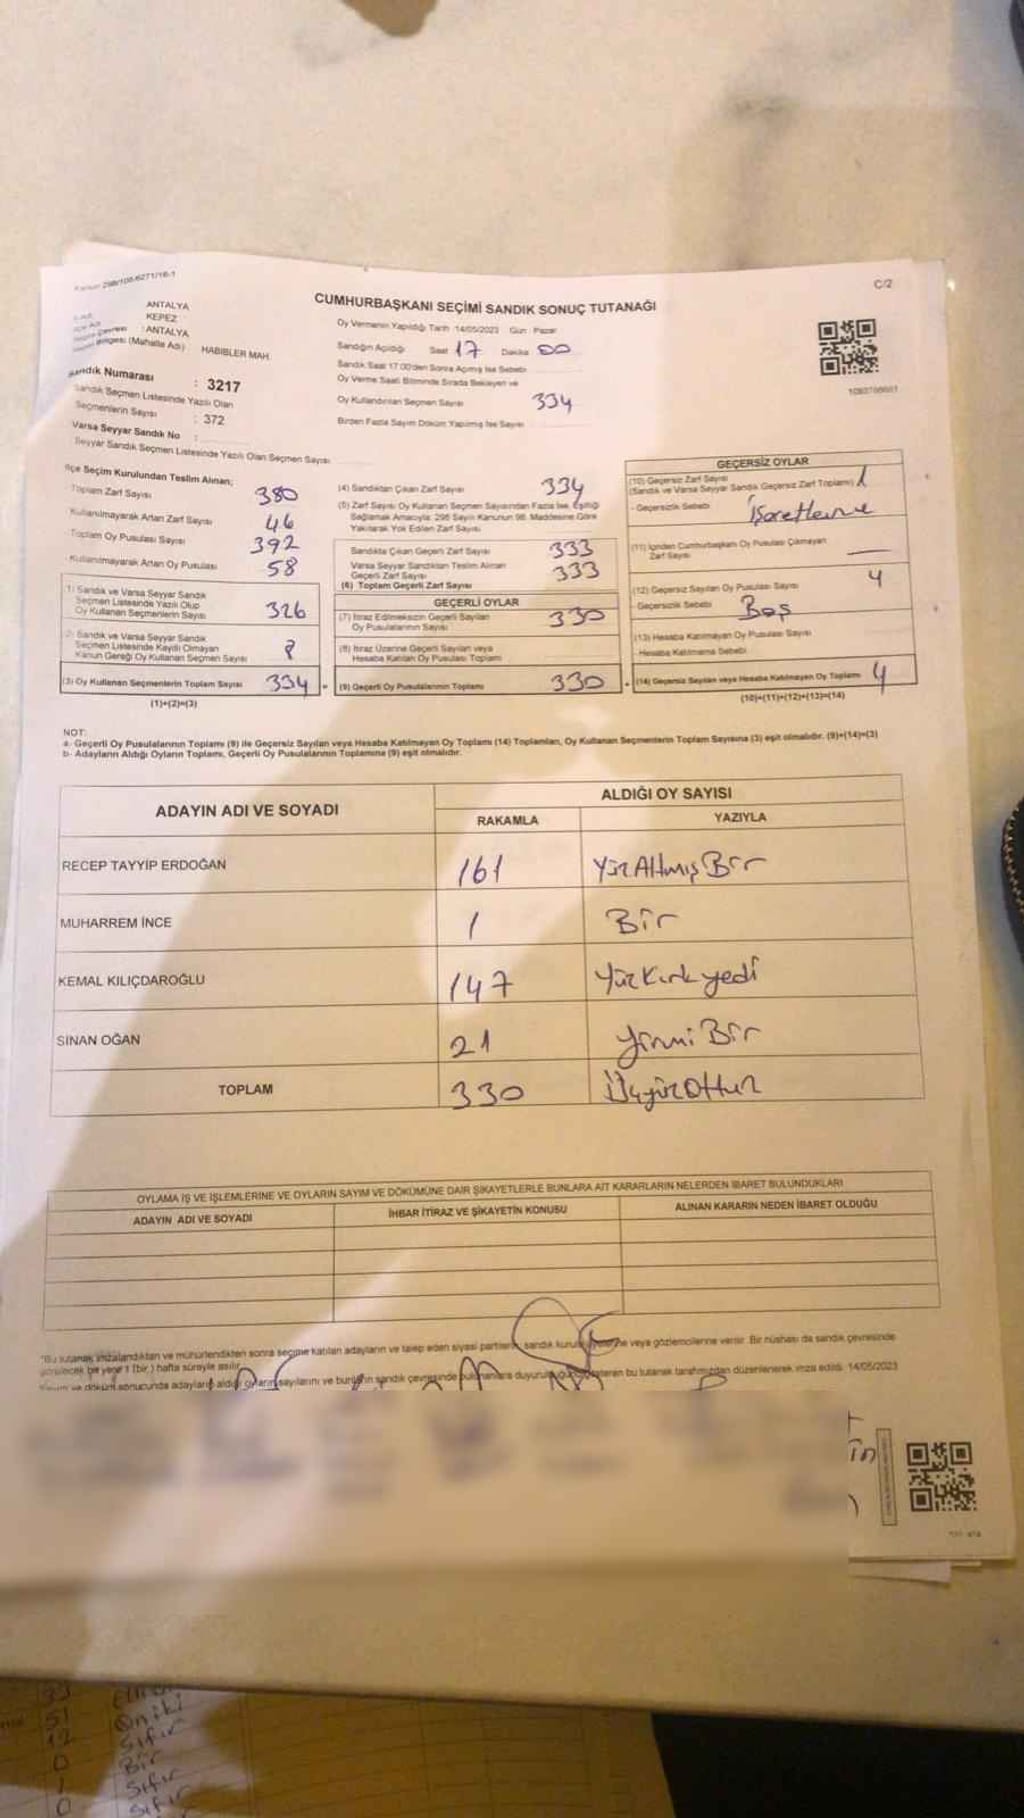 Kanun 298/105-6271/16-1
C/2
CUMHURBAŞKANI SEÇİMİ SANDIK SONUÇ TUTANAĞI
ANTALYA
KEPEZ
: ANTALYA
(Mahalle Adı) HABIBLER MAH.
Sandık Numarası : 3217
Sandık Seçmen Listesinde Yazılı Olan
Seçmenlerin Sayısı : 372
Varsa Seyyar Sandık No :
Seyyar Sandık Seçmen Listesinde Yazılı Olan Seçmen Sayısı
Oy Vermenin Yapıldığı Tarih 14/05/2023 Gün Pazar
Sandığın Açıldığı Saat 17 Dakika 00
Sandık Saat 17.00'den Sonra Açmış İse Sebebi
Oy Verme Saati Bitiminde Sırada Bekleyen ve
Oy Kullandırılan Seçmen Sayısı 334
Birden Fazla Sayım Döküm Yapılmış İse Sayısı
İlçe Seçim Kurulundan Teslim Alınan;
Toplam Zarf Sayısı 380
Kullanılmayarak Artan Zarf Sayısı 46
Toplam Oy Pusulası Sayısı 392
Kullanılmayarak Artan Oy Pusulası 58
1) Sandık ve Varsa Seyyar Sandık
Seçmen Listesinde Yazılı Olup
Oy Kullanan Seçmenlerin Sayısı 326
2) Sandık ve Varsa Seyyar Sandık
Seçmen Listesinde Kayıtlı Olmayan
Kanun Gereği Oy Kullanan Seçmen Sayısı 8
(3) Oy Kullanan Seçmenlerin Toplam Sayısı 334 =
(1)+(2)=(3)
(4) Sandıktan Çıkan Zarf Sayısı 334
(5) Zarf Sayısı Oy Kullanan Seçmen Sayısından Fazla İse, Eşitliği
Sağlamak Amacıyla; 298 Sayılı Kanunun 98. Maddesine Göre
Yakılarak Yok Edilen Zarf Sayısı
Sandıkta Çıkan Geçerli Zarf Sayısı 333
Varsa Seyyar Sandıktan Teslim Alınan
Geçerli Zarf Sayısı 333
(6) Toplam Geçerli Zarf Sayısı
GEÇERLİ OYLAR
(7) İtiraz Edilmeksizin Geçerli Sayılan
Oy Pusulalarının Sayısı 330
(8) İtiraz Üzerine Geçerli Sayılan veya
Hesaba Katılan Oy Pusulası Toplamı
(9) Geçerli Oy Pusulalarının Toplamı 330 +
GEÇERSİZ OYLAR
(10) Geçersiz Zarf Sayısı
(Sandık ve Varsa Seyyar Sandık Geçersiz Zarf Toplamı) 1
- Geçersizlik Sebebi İşaretleme
(11) İçinden Cumhurbaşkanı Oy Pusulası Çıkmayan
Zarf Sayısı —
(12) Geçersiz Sayılan Oy Pusulası Sayısı 4
- Geçersizlik Sebebi Boş
(13) Hesaba Katılmayan Oy Pusulası Sayısı
Hesaba Katılmama Sebebi
(14) Geçersiz Sayılan veya Hesaba Katılmayan Oy Toplamı 4
(10)+(11)+(12)+(13)=(14)
NOT:
a- Geçerli Oy Pusulalarının Toplamı (9) ile Geçersiz Sayılan veya Hesaba Katılmayan Oy Toplamı (14) Toplamları, Oy Kullanan Seçmenlerin Toplam Sayısına (3) eşit olmalıdır. (9)+(14)=(3)
b- Adayların Aldığı Oyların Toplamı, Geçerli Oy Pusulalarının Toplamına (9) eşit olmalıdır.
ADAYIN ADI VE SOYADI
ALDIĞI OY SAYISI
RAKAMLA YAZIYLA
RECEP TAYYİP ERDOĞAN 161 YüzAltmışBir
MUHARREM İNCE 1 Bir
KEMAL KILIÇDAROĞLU 147 Yüzkırkyedi
SİNAN OĞAN 21 yirmiBir
TOPLAM 330 ÜçyüzOttuz
OYLAMA İŞ VE İŞLEMLERİNE VE OYLARIN SAYIM VE DÖKÜMÜNE DAİR ŞİKAYETLERLE BUNLARA AİT KARARLARIN NELERDEN İBARET BULUNDUKLARI
ADAYIN ADI VE SOYADI İHBAR İTİRAZ VE ŞİKAYETİN KONUSU ALINAN KARARIN NEDEN İBARET OLDUĞU
*Bu tutanak imzalandıktan ve mühürlendikten sonra seçime katılan adayların ve talep eden siyasi partilerin sandık kurulu veya gözlemcilerine verilir. Bir nüshası da sandık çevresinde
görülecek bir yere 1 (bir) hafta süreyle asılır.
Sayım ve döküm sonucunda adayların aldığı oyların sayılarını ve bunların sandık çevresinde bulunanlara duyurulduğunu gösteren bu tutanak tarafımızdan düzenlenerek imza edildi. 14/05/2023
in
51
12 Oniki
0 Sıfır
Bir
Sıfır
0 Sıfır